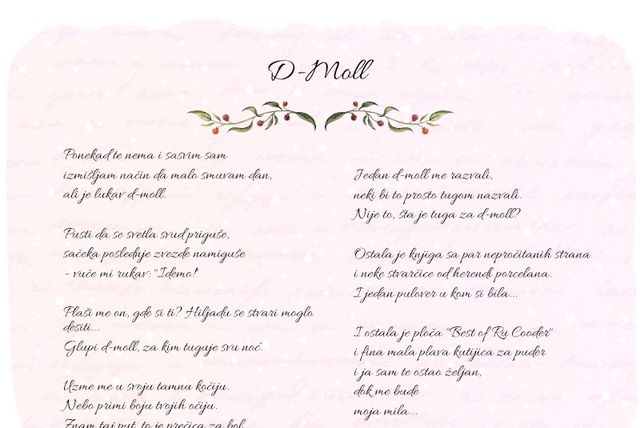 D-Moll
Ponekad te nema i sasvim sam
izmišljam način da malo smuvam dan,
ali je lukav d-moll.
Pusti da se svetla svud priguše,
sačeka poslednje zvezde namiguše
- vuče mi rukav: "Idemo!"
Plaši me on, gde si ti? Hiljadu se stvari moglo
desiti...
Glupi d-moll, za kim tuguje svu noć.
Uzme me u svoju tamnu kočiju.
Nebo primi boju tvojih očiju.
Znam taj put, to je prečica za bol.
Jedan d-moll me razvali,
neki bi to prosto tugom nazvali.
Nije to, šta je tuga za d-moll?
Ostala je knjiga sa par nepročitanih strana
i neke stvarčice od herendi porcelana.
I jedan pulover u kom si bila...
I ostala je ploča "Best of Ry Cooder"
i fina mala plava kutijica za puder
i ja sam te ostao željan,
dok me bude
moja mila...